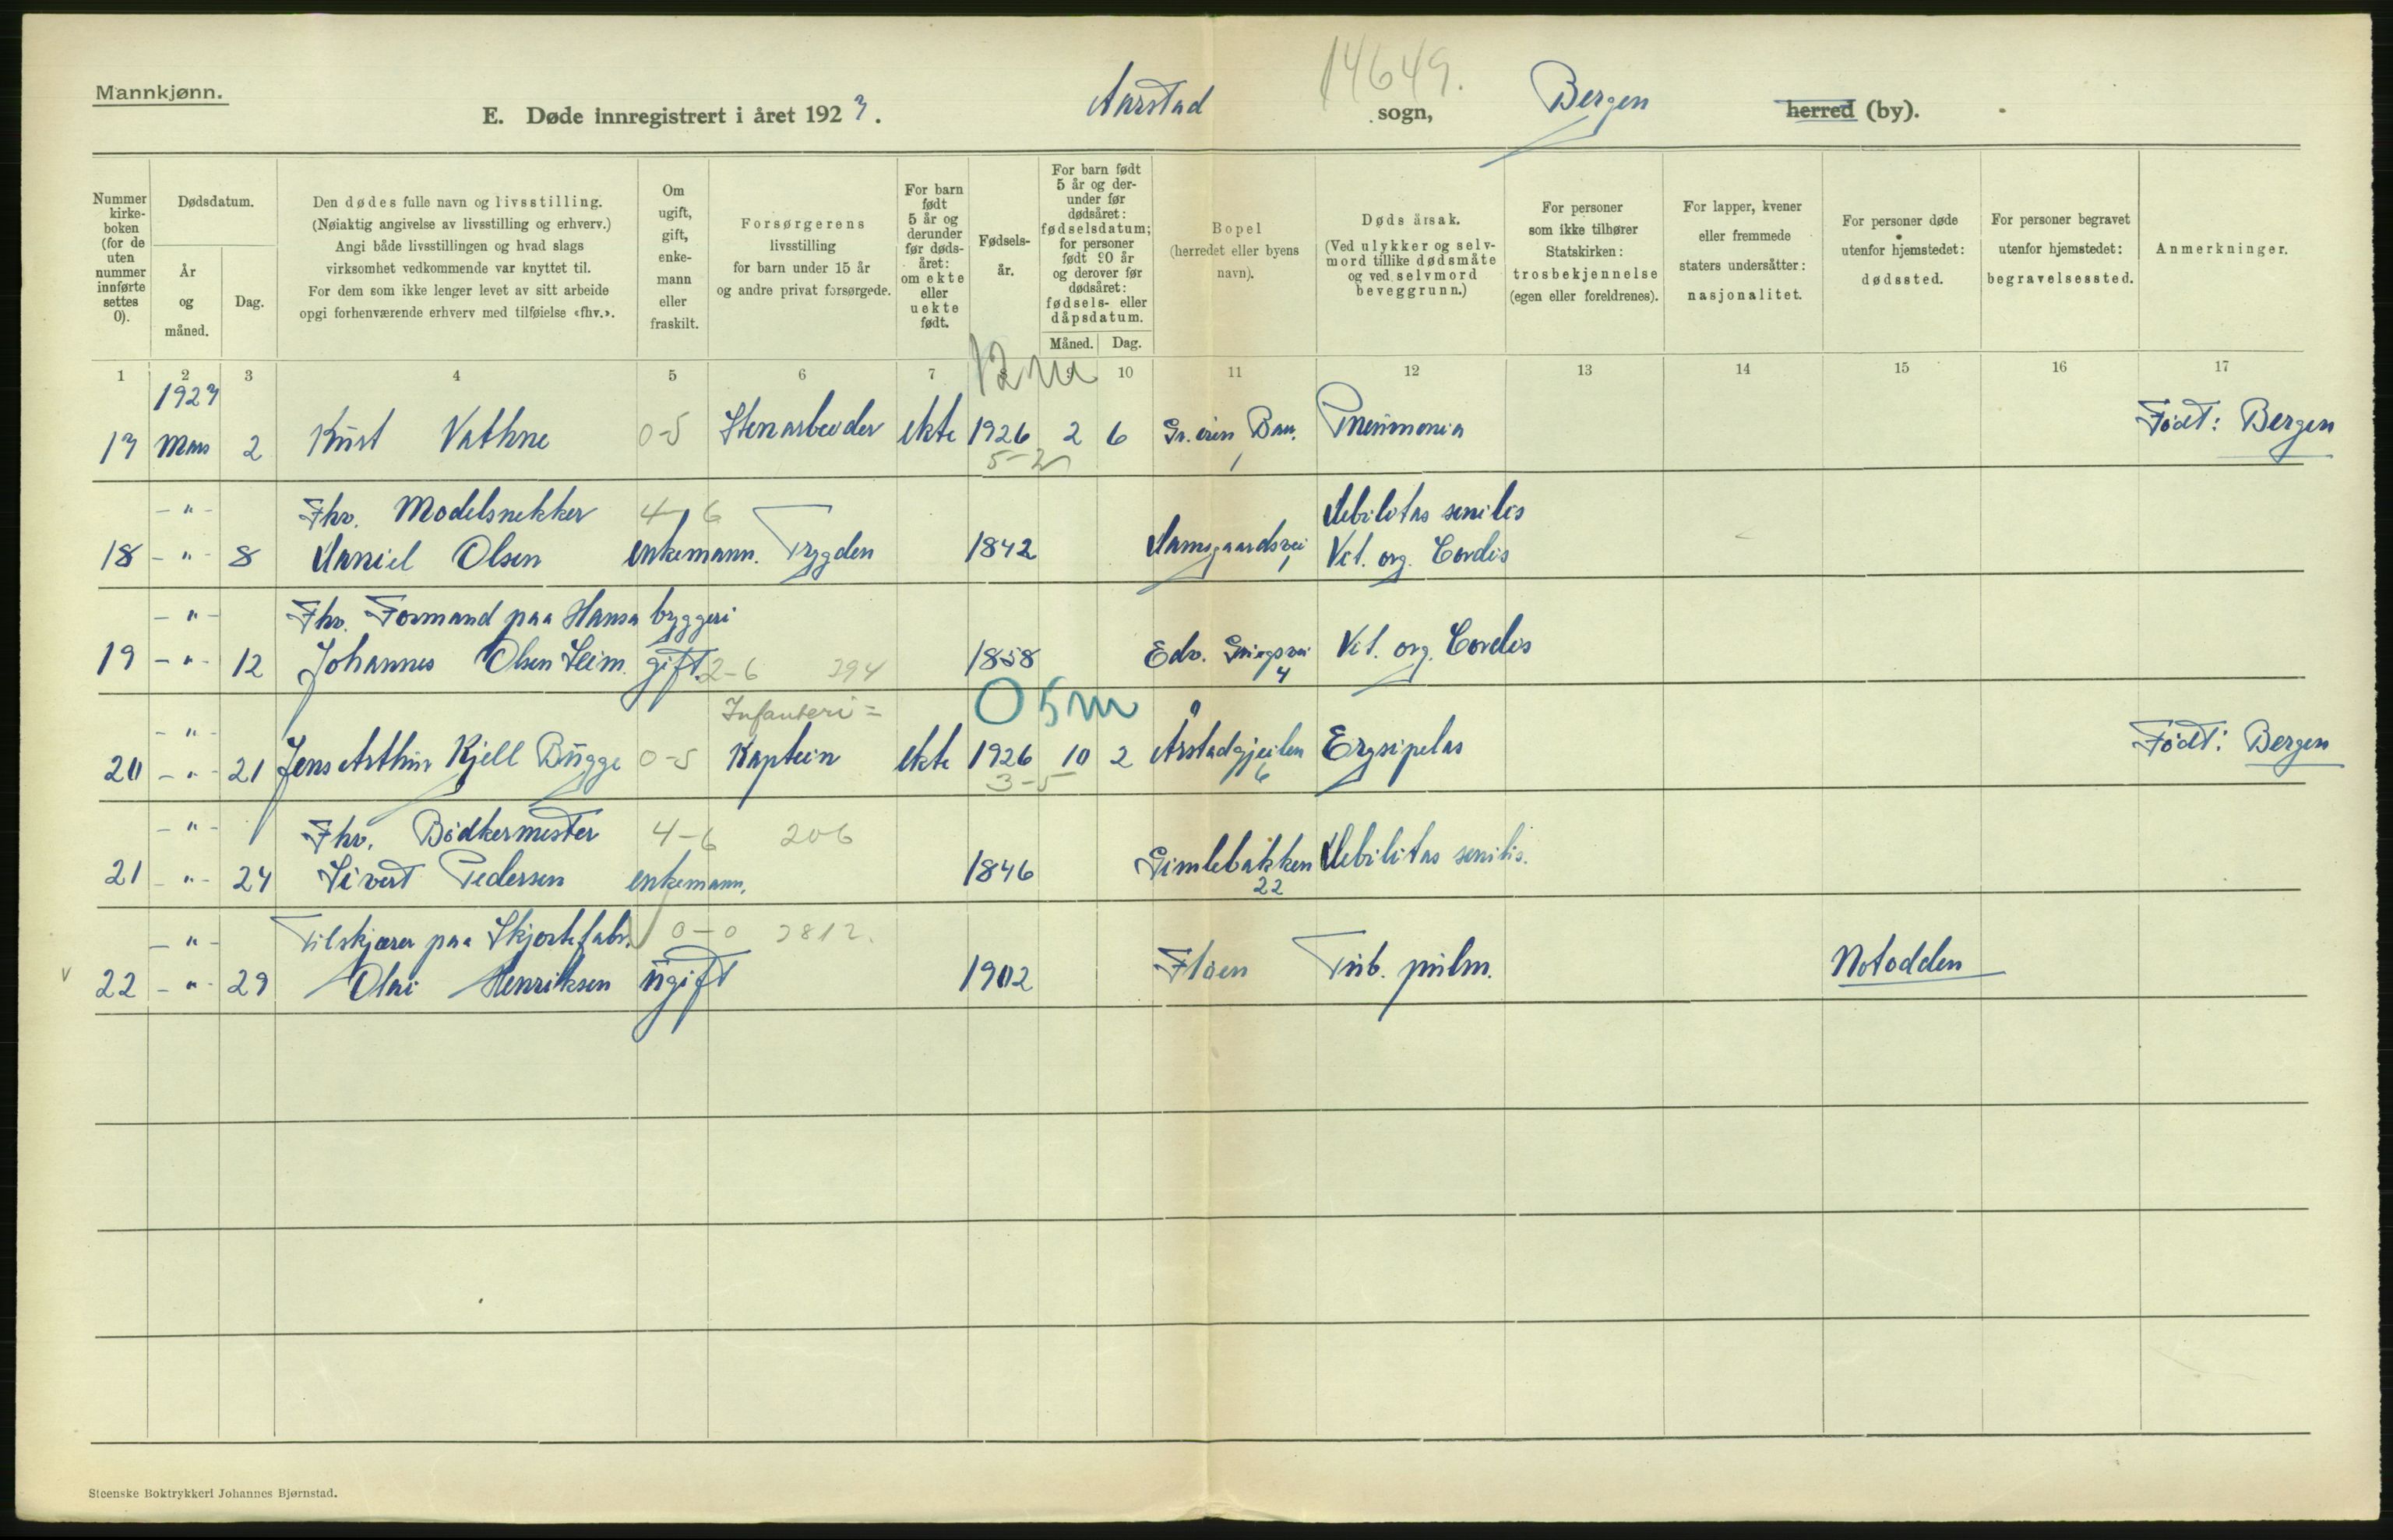 Mannkjønn.
14649.
E. Døde innregistrert i året 1927. Aarstad sogn, Bergen herred (by).
Nummer kirke-boken (for de uten nummer innførte settes 0).
Dødsdatum.
År og måned.
Dag.
Den dødes fulle navn og livsstilling.
(Nøiaktig angivelse av livsstilling og erhverv.)
Angi både livsstillingen og hvad slags
virksomhet vedkommende var knyttet til.
For dem som ikke lenger levet av sitt arbeide
opgi forhenværende erhverv med tilføielse «fhv.».
Om ugift, gift, enke-mann eller fraskilt.
Forsørgerens
livsstilling
for barn under 15 år
og andre privat forsørgede.
For barn født 5 år og derunder før døds-året: om ekte eller uekte født.
Fødsels-år.
For barn født 5 år og der-under før dødsåret: fødselsdatum; for personer født 90 år og derover før dødsåret: fødsels- eller dåpsdatum.
Måned. Dag.
Bopel
(herredet eller byens navn).
Døds årsak.
(Ved ulykker og selv-mord tillike dødsmåte og ved selvmord beveggrunn.)
For personer som ikke tilhører Statskirken: trosbekjennelse (egen eller foreldrenes).
For lapper, kvener eller fremmede staters undersåtter: nasjonalitet.
For personer døde utenfor hjemstedet: dødssted.
For personer begravet utenfor hjemstedet: begravelsessted.
Anmerkninger.
1 2 3 4 5 6 7 8 9 10 11 12 13 14 15 16 17
1927 12 m
17 Mars 2 Kurt Vathne 0-5 Stenarbeider ekte 1926 2 6 Pneumonia Født: Bergen
5-2
-"- Fhv. Modelsnekker 4-6 Debilitas senilis
18 -"- 8 Daniel Olsen enkemann. Trygden 1842 Damsgaardsvei Vit. org. Cordis
-"- Fhv. Formand paa Hansa byggeri
19 -"- 12 Johannes Olsen Seim. gift. 2-6 394 1858 Edv. Griegsvei 4 Vit. org. Cordis
Infanteri= 0 5 m
-"-
20 -"- 21 Jens Arthur Kjell Bugge 0-5 Kaptein ekte 1926 10 2 Årstadgjeilen 6 Erysipelas Født: Bergen
3-5
-"- Fhv. Bødkermester 4-6 206
21 -"- 24 Sivert Pedersen enkemann. 1846 Gimlebakken 22 Debilitas senilis.
-"- Tilskjærer paa Skjortefabr. 0-0 2812.
v 22 -"- 29 Olai Henriksen ugift 1902 Fløen Tub. pulm. Notodden
Steenske Boktrykkeri Johannes Bjørnstad.